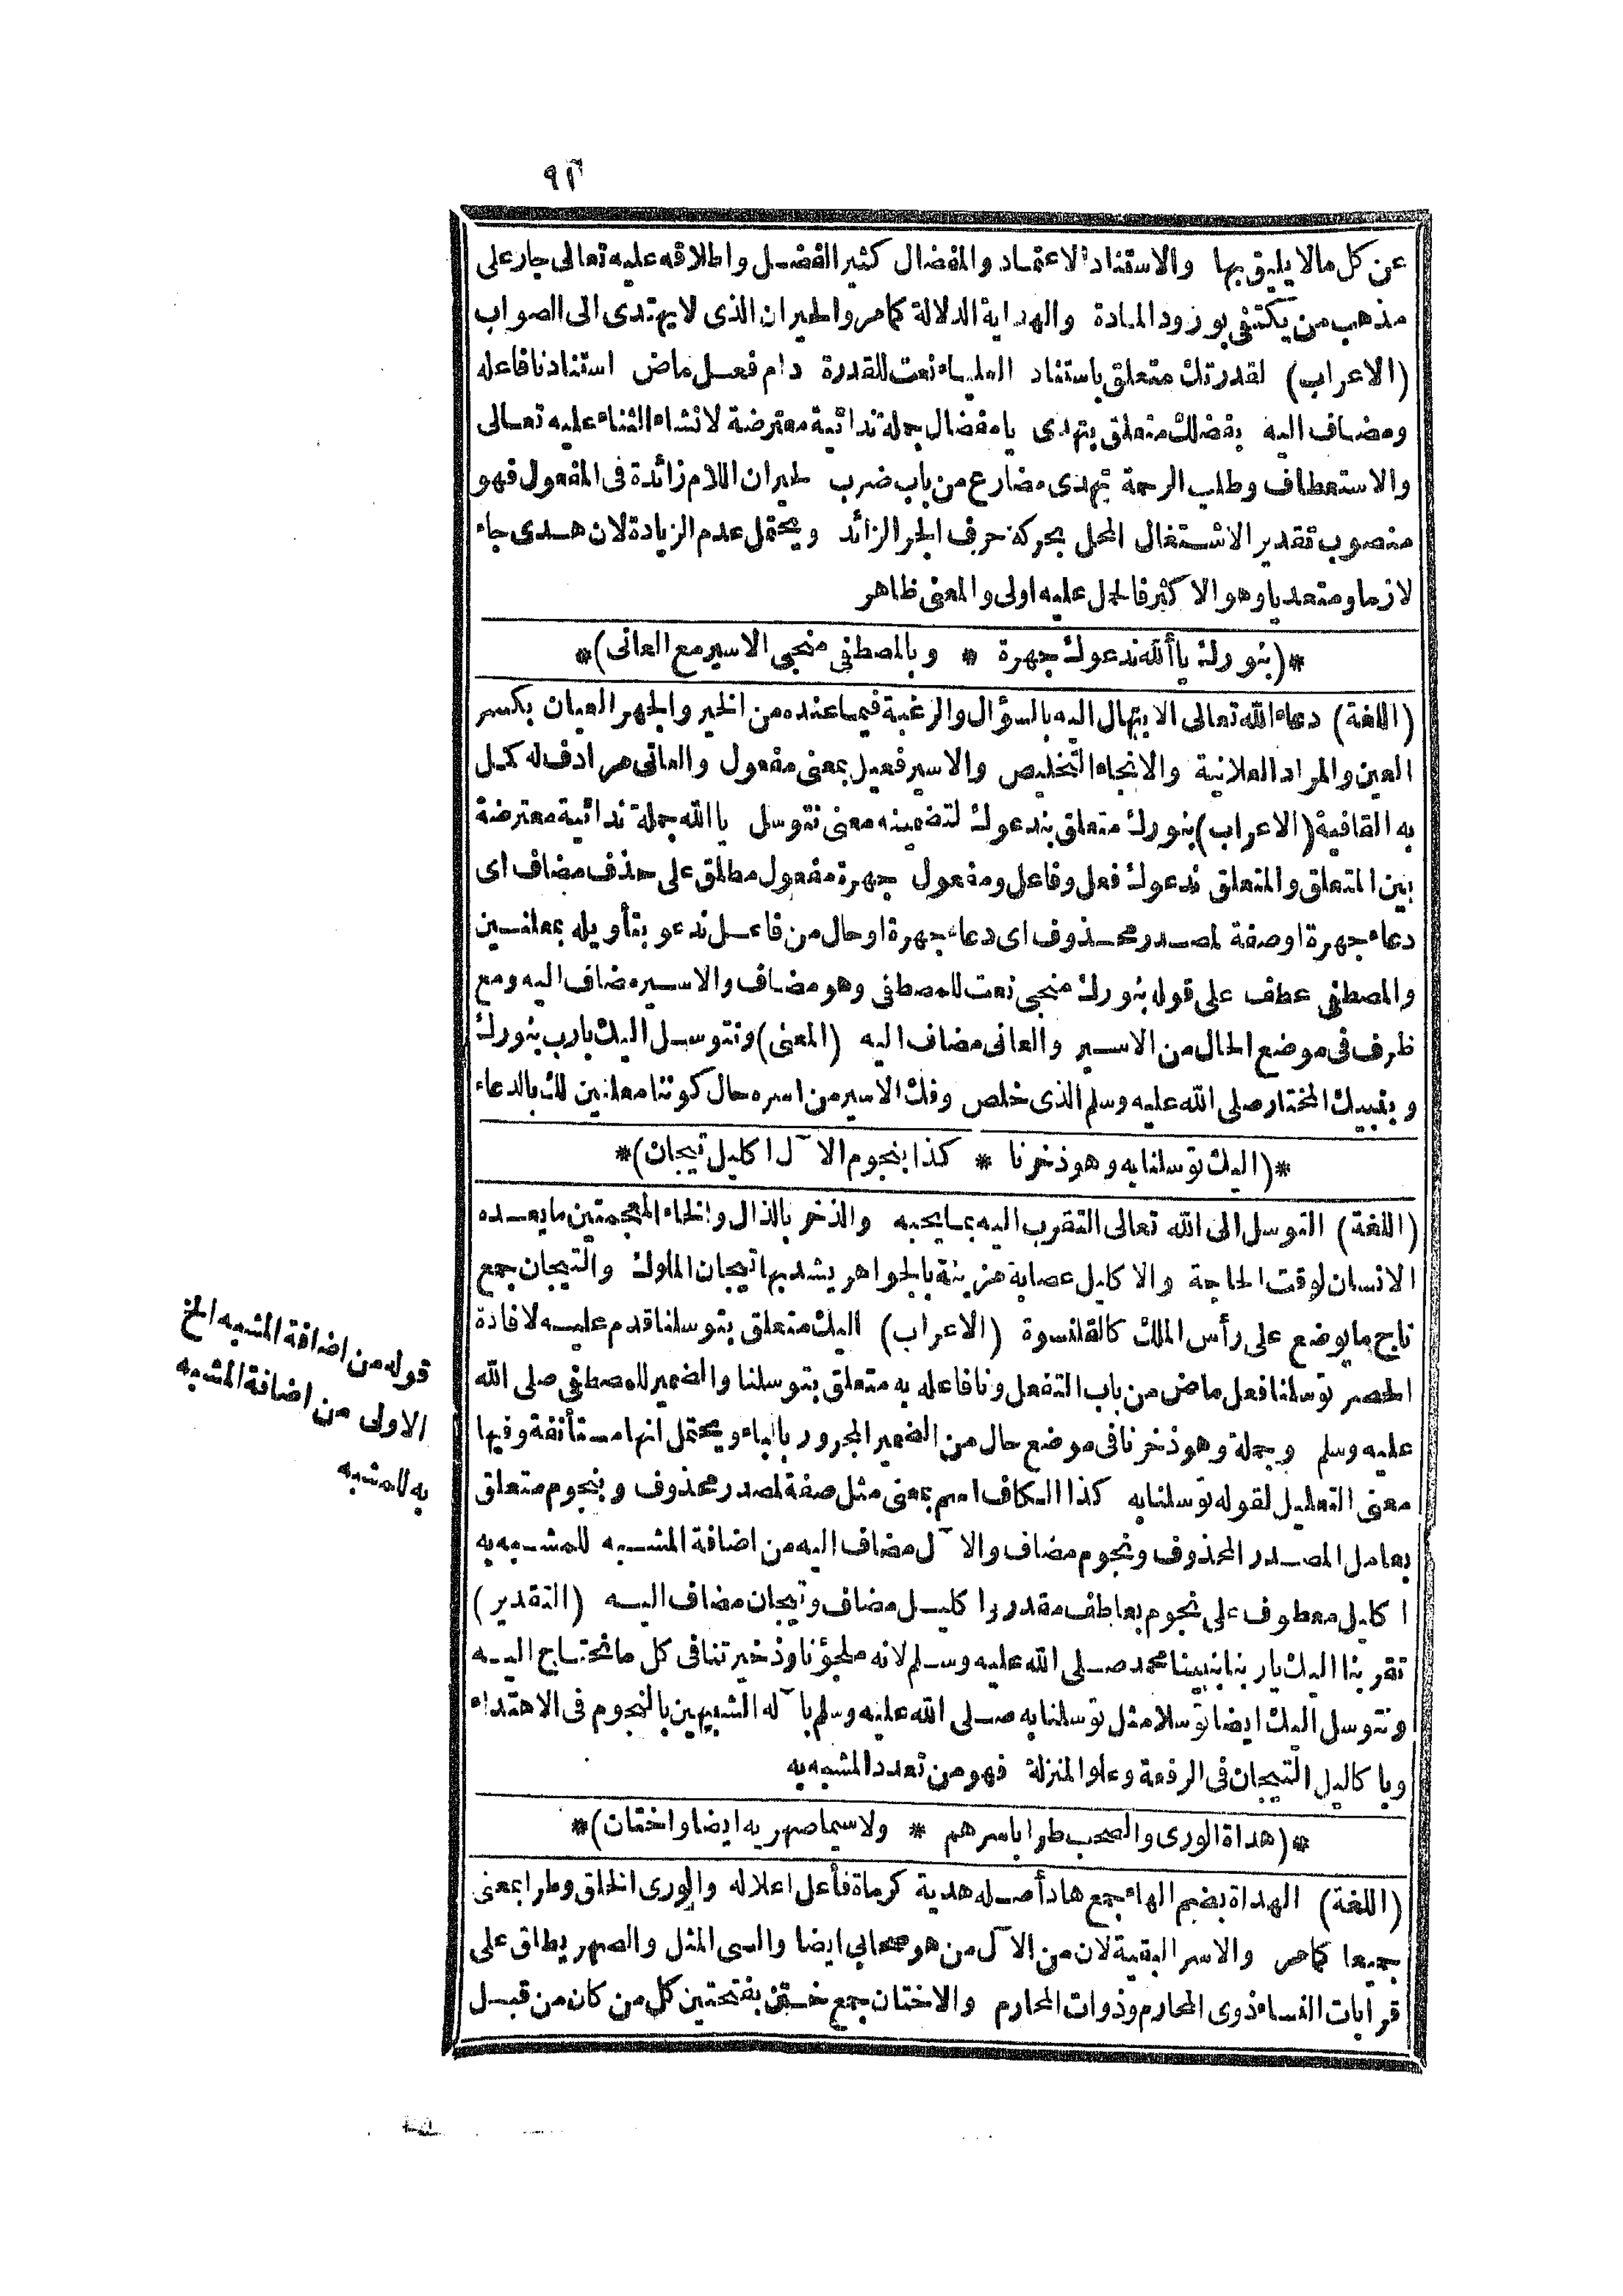 عن كل مالا يليق بها والاستناد الاعتماد والمفضال كثير الفضل واطلاقه عليه تعالى جار على
مذهب من يكتفى بورود المادة والهداية الدلالة كمامر والحيران الذى لا يهتدى الى الصواب
(الاعراب) لقدرتك متعلق باستناد العلياء نعت للقدرة دام فعل ماض استنادنا فاعله
ومضاف اليه بفضلك متعلق بتهدى يا مفضال جملة ندائية معترضة لانشاء الثناء عليه تعالى
والاستعطاف وطلب الرحمة تهدى مضارع من باب ضرب لحيران اللام زائدة فى المفعول فهو
منصوب تقدير الاشتغال المحل بحركة حرف الجر الزائد ويحتمل عدم الزيادة لان هدى جاء
لازما ومتعديا وهو الاكثر فالحمل عليه اولى والمعنى ظاهر
*(بنورك يا ألله ندعوك جهرة * وبالمصطفى منجى الاسير مع العانى)*
(اللغة) دعاء الله تعالى الابتهال اليه بالسؤال والرغبة فيما عنده من الخير والجهر العيان بكسر
العين والمراد العلانية والانجاء التخليص والاسير فعيل بمعنى مفعول والعانى مرادف له كمل
به القافية (الاعراب) بنورك متعلق بندعوك لتضمينه معنى نتوسل يا الله جملة ندائية معترضة
بين المتعلق والمتعلق ندعوك فعل وفاعل ومفعول جهرة مفعول مطلق على حذف مضاف اى
دعاء جهرة اوصفة لمصدر محذوف اى دعاء جهرة اوحال من فاعل ندعو بتأويله بمعلنين
والمصطفى عطف على قوله بنورك منجى نعت للمصطفى وهو مضاف والاسير مضاف اليه ومع
ظرف فى موضع الحال من الاسير والعانى مضاف اليه (المعنى) ونتوسل اليك يارب بنورك
وبنبيك المختار صلى الله عليه وسلم الذى خلص وفك الاسير من اسره حال كوننا معلنين لك بالدعاء
*(اليك توسلنا به وهو ذخرنا * كذا بنجوم الآل اكليل تيجان)*
(اللغة) التوسل الى الله تعالى التقرب اليه بما يحبه والذخر بالذال والخاء المعجمتين ما يعده
الانسان لوقت الحاجة والاكليل عصابة مزينة بالجواهر يشد بها تيجان الملوك والتيجان جمع
تاج ما يوضع على رأس الملك كالقلنسوة (الاعراب) اليك متعلق بتوسلنا قدم عليه لافادة
الحصر توسلنا فعل ماض من باب التفعل ونا فاعله به متعلق بتوسلنا والضمير للمصطفى صلى الله
عليه وسلم وجملة وهو ذخرنا فى موضع حال من الضمير المجرور بالباء ويحتمل انها مستأنفة وفيها
معنى التعليل لقوله توسلنا به كذا الكاف اسم بمعنى مثل صفة لمصدر محذوف وبنجوم متعلق
بعامل المصدر المحذوف ونجوم مضاف والآل مضاف اليه من اضافة المشبه للمشبه به
اكليل معطوف على نجوم بعاطف مقدر واكليل مضاف وتيجان مضاف اليه (التقدير)
تقربنا اليك ياربنا بنبينا محمد صلى الله عليه وسلم لانه ملجؤنا وذخيرتنا فى كل ما نحتاج اليه
ونتوسل اليك ايضا توسلا مثل توسلنا به صلى الله عليه وسلم بآله الشبيهين بالنجوم فى الاهتداء
وباكاليل التيجان فى الرفعة وعلو المنزلة فهو من تعدد المشبه به
*(هداة الورى والصحب طرا باسرهم * ولا سيما صهريه ايضا واختان)*
(اللغة) الهداة بضم الهاء جمع هاد أصله هدية كرماة فأعل اعلاله والورى الخلق وطرا بمعنى
جميعا كمامر والاسر البقية لان من الآل من هو صحابى ايضا والسى المثل والصهر يطلق على
قرابات النساء ذوى المحارم وذوات المحارم والاختان جمع ختن بفتحتين كل من كان من قبل
قوله من اضافة المشبه الخ
الاولى من اضافة المشبه
به للمشبه